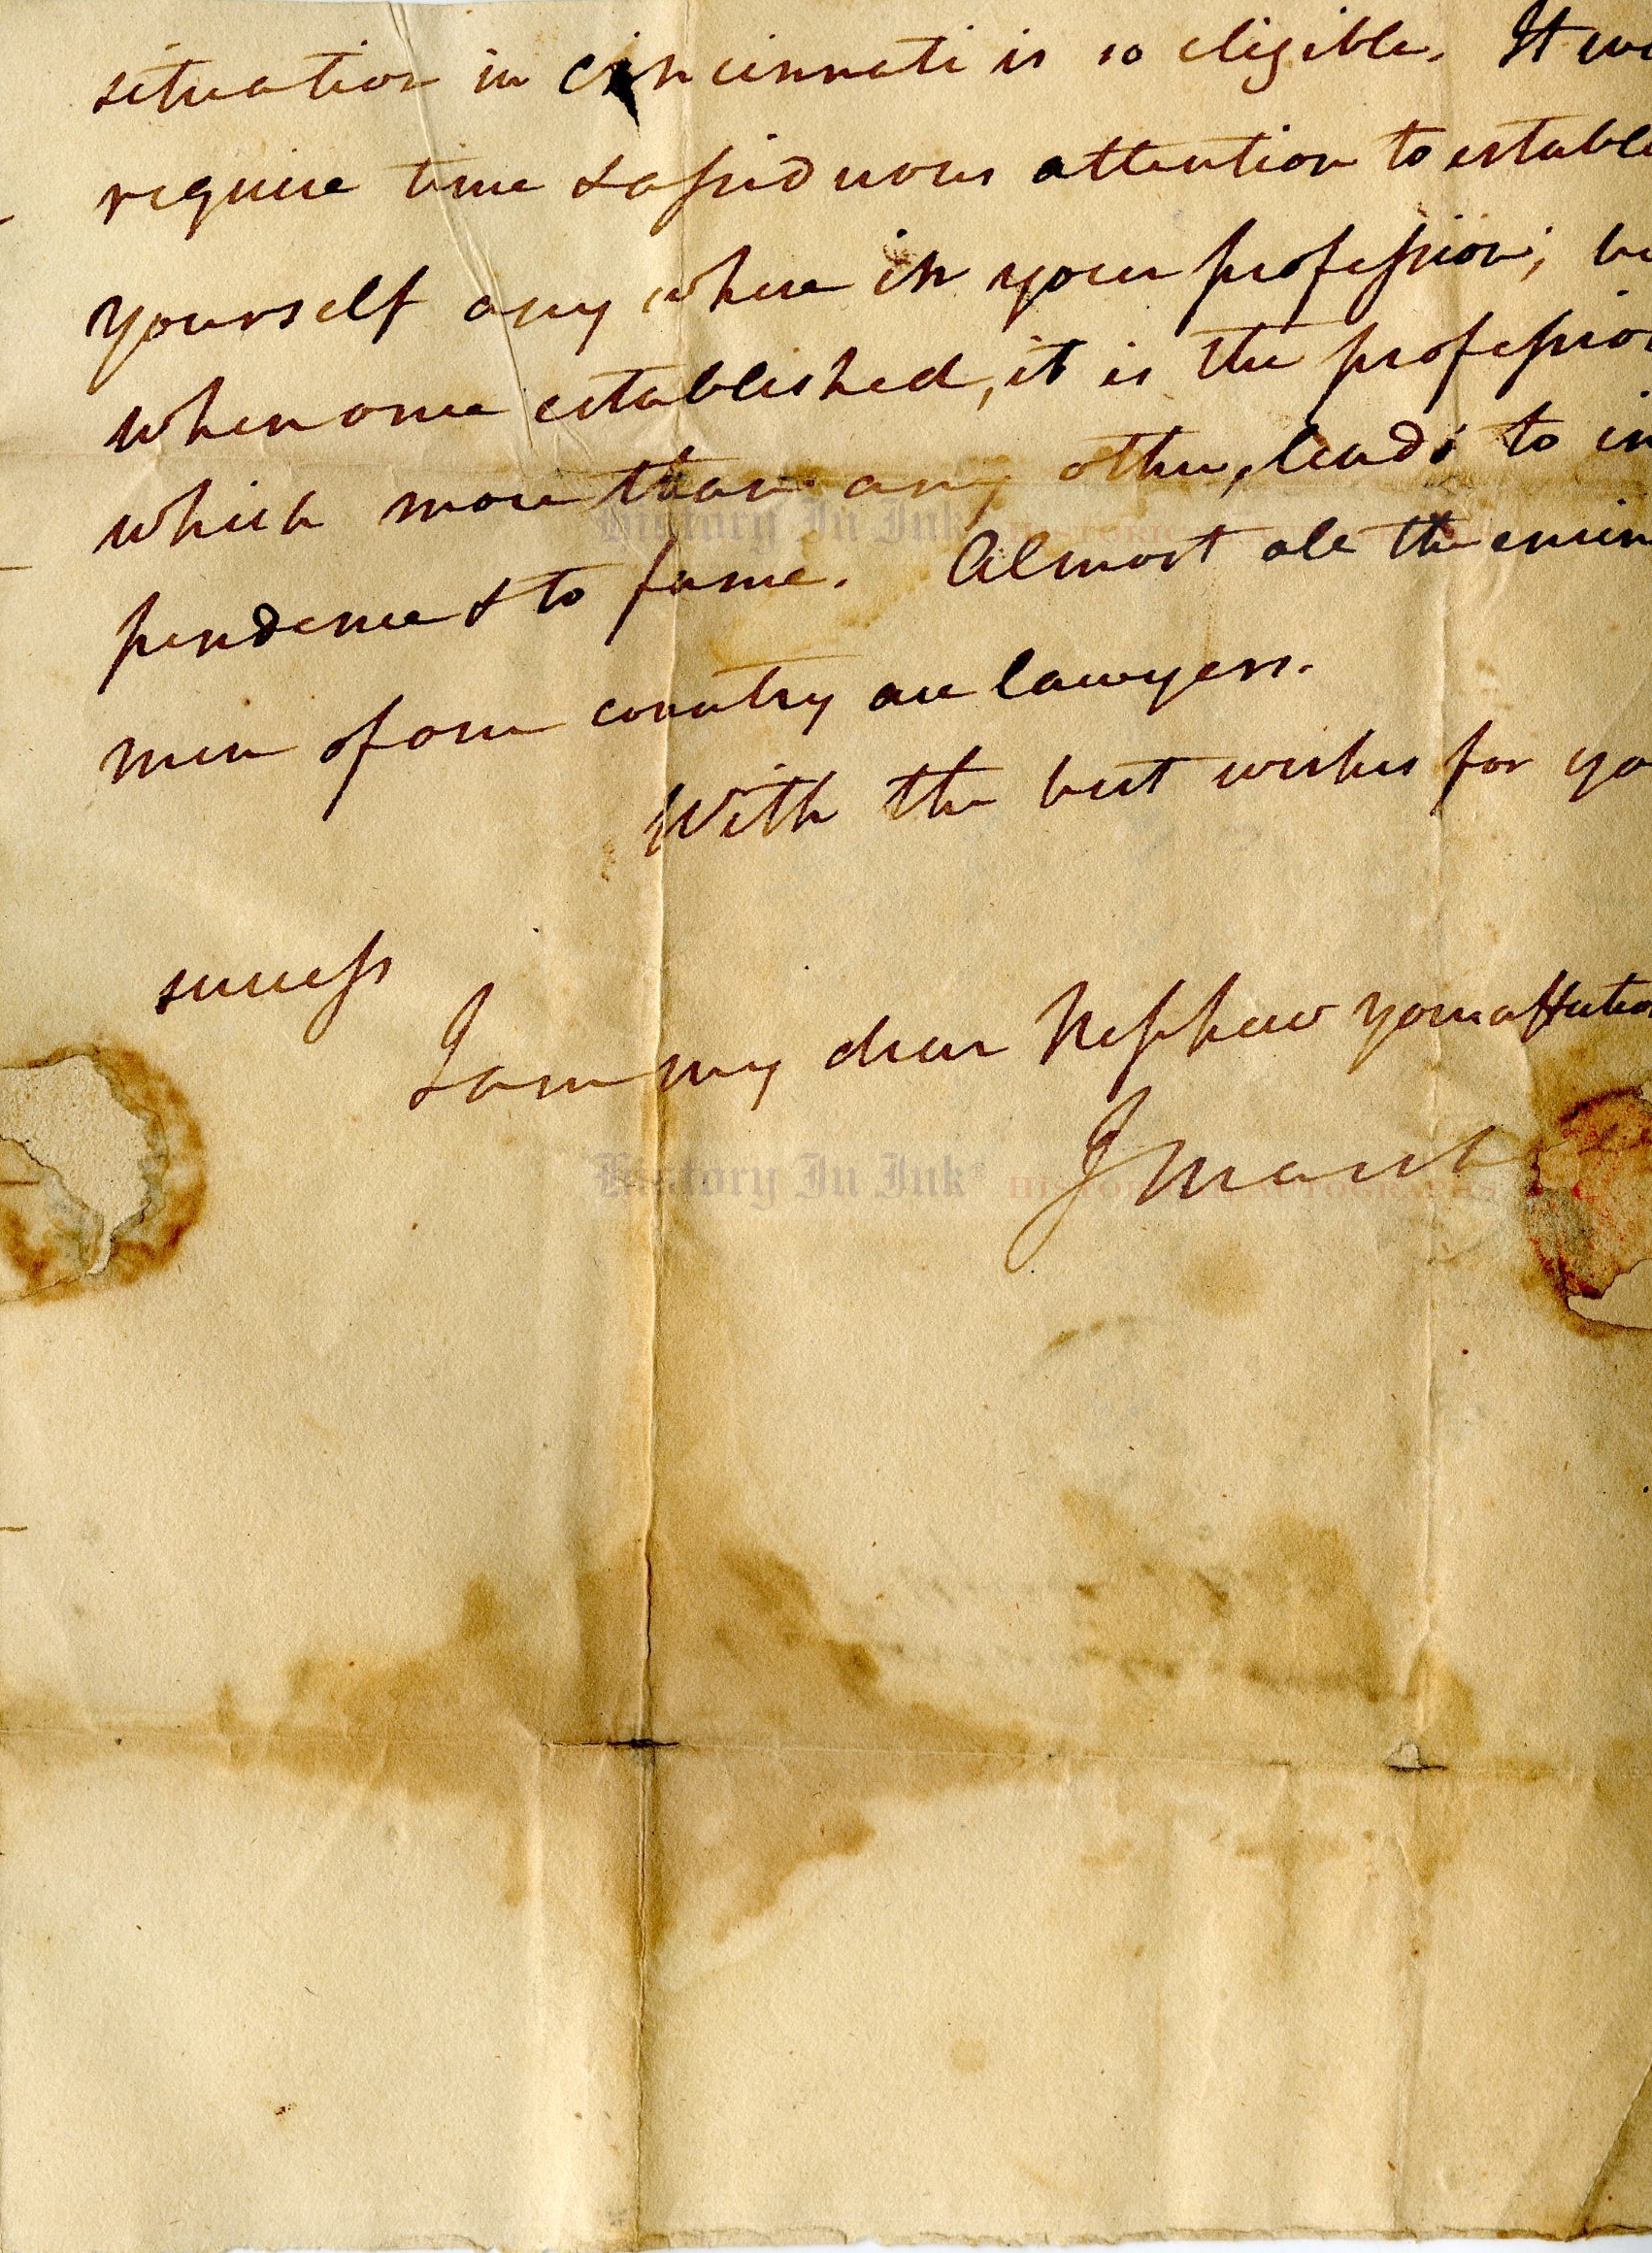 situation in Cincinnati is so eligible. It wo
require time & assiduous attention to establi
yourself any where in your profession; bu
when once established, it is the profession
which more than any other, leads to in
pendence & to fame. Almost all the emin
men of our country are lawyers.
With the best wishes for yo
success
I am my dear Nephew your affectio
J Marsh
History In Ink HISTORICAL AUTOGRAPHS